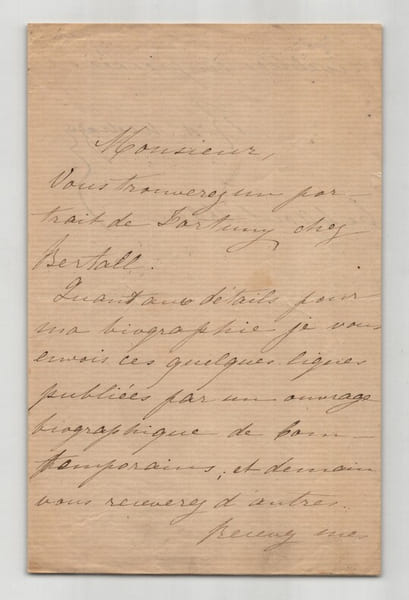 Monsieur,
Vous trouverez un por-
trait de Fortuny chez
Bertall.
Quant aux détails pour
ma biographie je vous
envois ces quelques lignes
publiées par un ouvrage
biographique de Com-
temporains, et demain
vous receverez d'autres.
Recevez mes